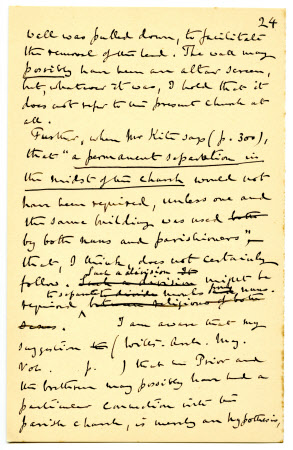 24
wall was pulled down, to facilitate
the removal of the lead. The wall may
possibly have been an altar screen,
but, whatever it was, I hold that it
does not refer to the present church at
all.
Further, when Mr Kite says (p. 300),
that "a permanent separation in
the midst of the church would not
have been required, unless one and
the same building was used both
by both nuns and parishioners",
that, I think, does not certainly
follow. Such a division might be
Such a division
required to separate monks from nuns.
between religious of both
sexes. I am aware that my
suggestion (Wilts. Arch. Mag.
Vol. p. ) that the Prior and
the brethren may possibly have had a
particular connection with the
parish church, is merely an hypothesis,